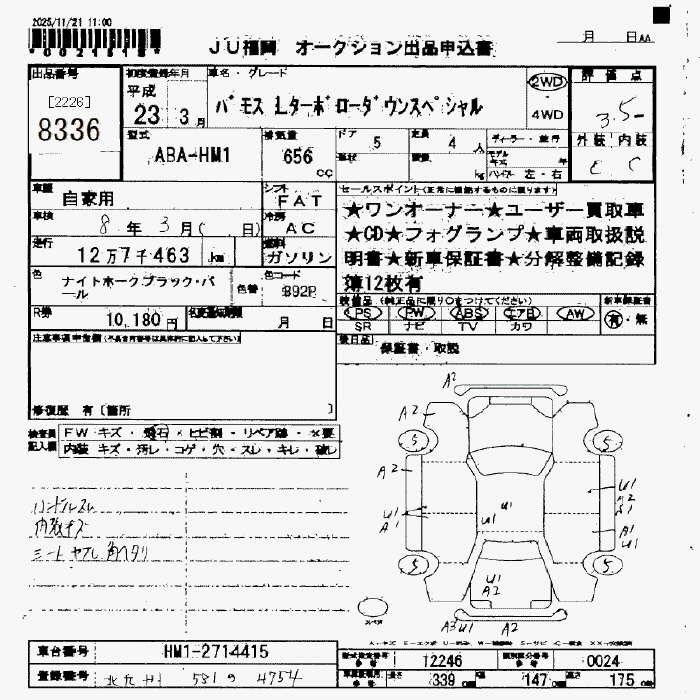 2025/11/21 11:00
月 日AA
JU福岡 オークション出品申込書
出品番号
[2226]
8336
初度登録年月
平成
23 3月
車名・グレード
バモス Lターボローダウンスペシャル
2WD
4WD
評価点
3.5
外装 内装
C C
型式
ABA-HM1
排気量
656
cc
ドア
5
定員
4 人
形状
kg
左・右
車歴
自家用
シフト
FAT
車検
8年 3月( 日)
冷房
AC
走行
12万7千463 km
燃料
ガソリン
色
ナイトホークブラック・パール
色替
色コード
B92P
R券
10,180円
名変期限
月 日
セールスポイント
★ワンオーナー★ユーザー買取車
★CD★フォグランプ★車両取扱説
明書★新車保証書★分解整備記録
簿12枚有
装備品 (純正品に限り○をつけてください)
新車保証書
PS PW ABS エアB AW
SR ナビ TV カワ
有・無
後日品
保証書・取説
注意事項申告欄
修復歴 有〔箇所 〕
検査員
記入欄
FW キズ・飛石×ヒビ割・リペア跡・×要
内装 キズ・汚レ・コゲ・穴・スレ・キレ・破レ
ハンドルスレ
内装キズ
シートヤブレ 角ヘタリ
A2
A2
5
5
A2
U1
A1
U1
U1
U1
A2
A1
U1
5
5
U1
A2
A3 U1 A2
車台番号
HM1-2714415
登録番号
北九州 581 4754
12246
0024
長さ 339 幅 147 高さ 175